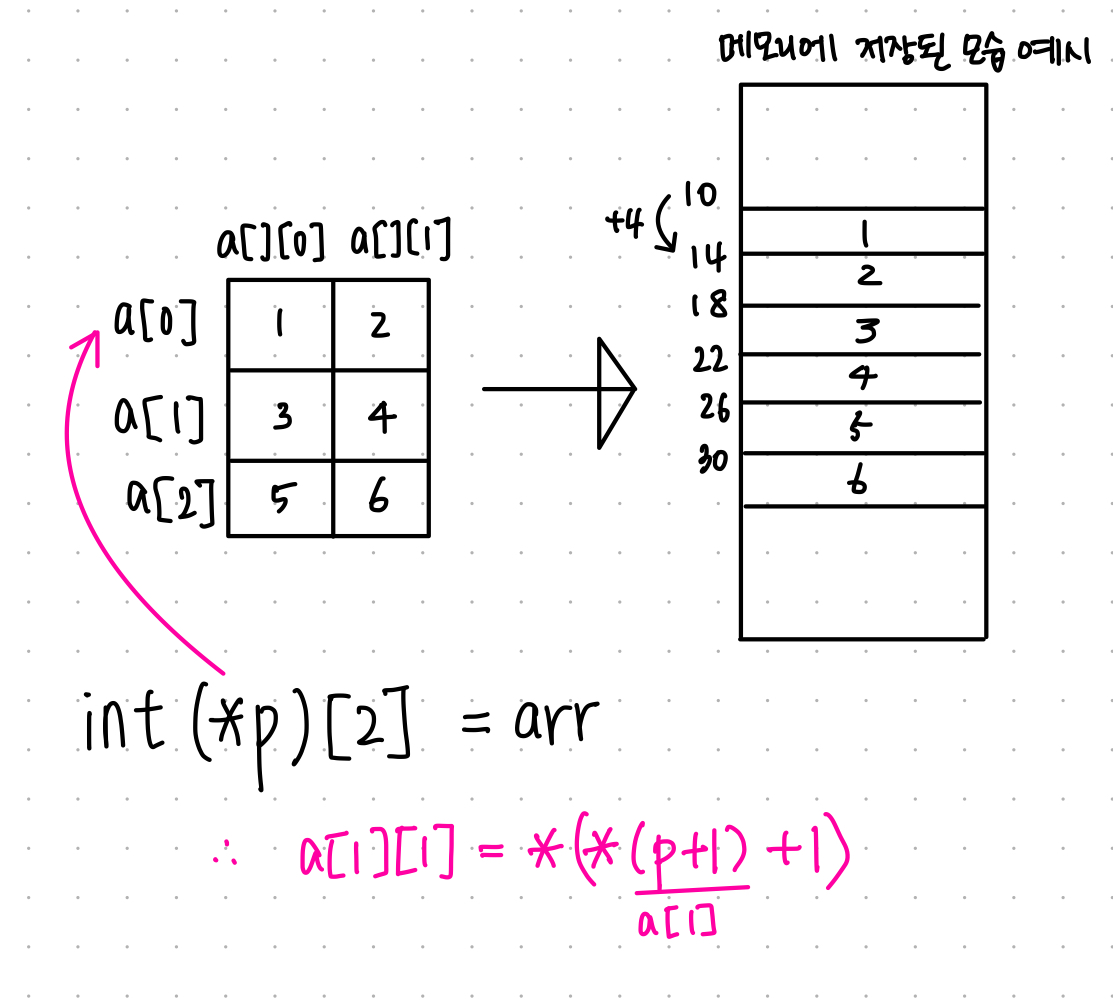 메모리에 저장된 모습 예시
a[][0] a[][1]
a[0] 1 2
a[1] 3 4
a[2] 5 6
+4
10
1
14
2
18
3
22
4
26
5
30
6
int (*p)[2] = arr
∴ a[1][1] = *(*(p+1)+1)
a[1]